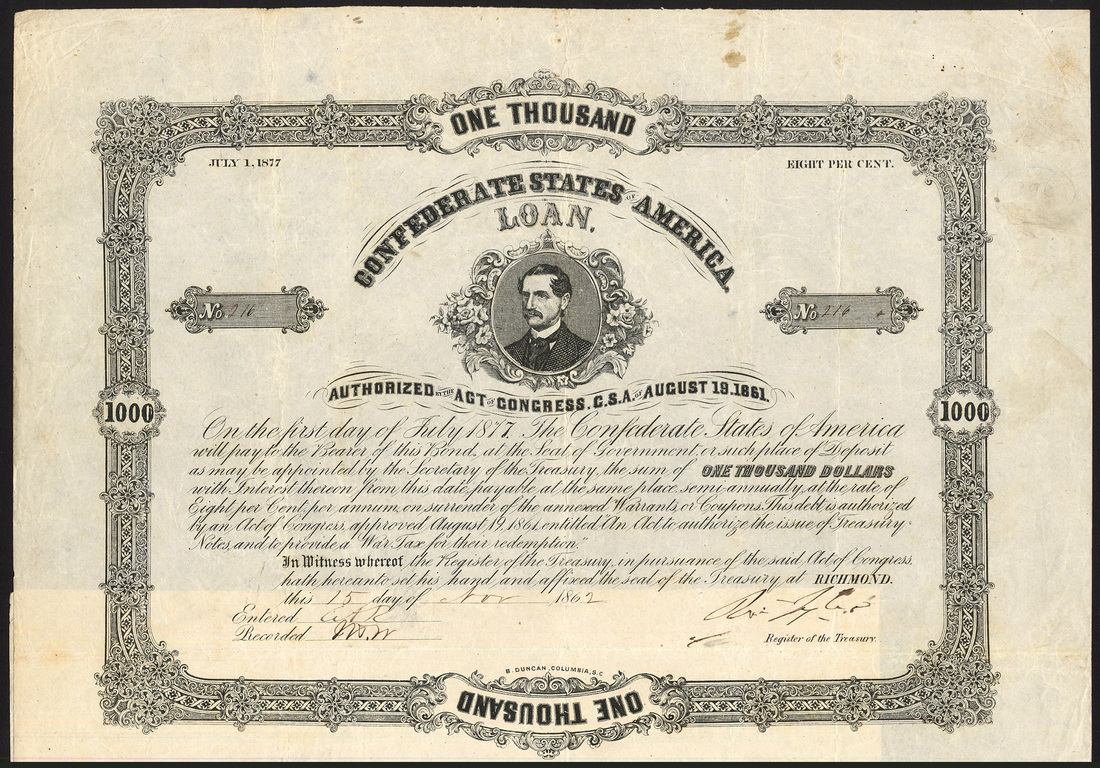 ONE THOUSAND
JULY 1, 1877
EIGHT PER CENT.
CONFEDERATE STATES OF AMERICA.
LOAN.
No. 216
No. 216
AUTHORIZED BY THE ACT OF CONGRESS. C.S.A. OF AUGUST 19. 1861.
1000
1000
On the first day of July 1877. The Confederate States of America
will pay to the Bearer of this Bond, at the Seat of Government, or such place of Deposit
as may be appointed by the Secretary of the Treasury, the sum of ONE THOUSAND DOLLARS
with Interest thereon from this date, payable at the same place semi-annually, at the rate of
Eight per Cent, per annum, on surrender of the annexed Warrants or Coupons. This debt is authorized
by an Act of Congress, approved August 19, 1861, entitled "An Act to authorize the issue of Treasury
Notes, and to provide a War Tax for their redemption."
In Witness whereof the Register of the Treasury, in pursuance of the said Act of Congress,
hath hereunto set his hand, and affixed the seal of the Treasury, at RICHMOND.
this 15 day of Nov 1862
Entered
Recorded
Register of the Treasury.
B. DUNCAN, COLUMBIA, S.C.
ONE THOUSAND